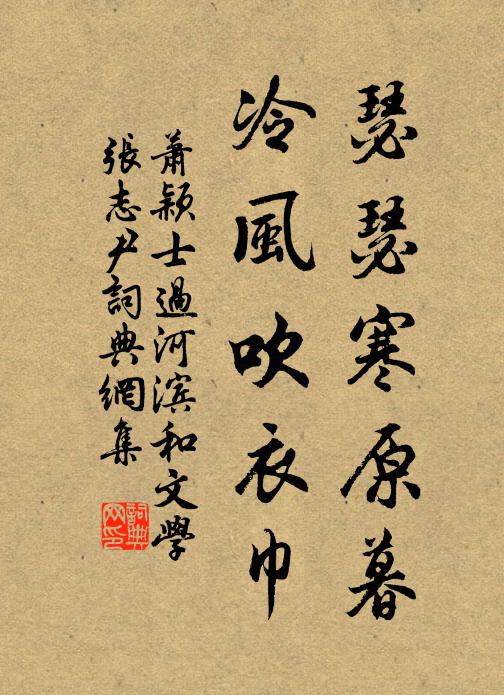 瑟瑟寒原暮
冷風吹衣巾
蕭穎士過河滨和文學
張志尹詞典網集
詞典网印